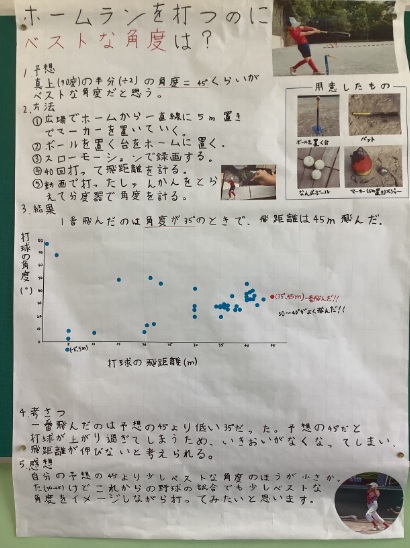 ホームランを打つのに
ベストな角度は?
1.予想
真上(90度)の半分(÷2)の角度=45°くらいが
ベストな角度だと思う。
2.方法
①広場でホームから一直線に5m置き
でマーカーを置いていく。
②ボールを置く台をホームに置く。
③スローモーションで録画する。
④40回打って飛距離を計る。
⑤動画で打ったしゅんかんをとら
えて分度器で角度を計る。
用意したもの
ボールを置く台
バット
なんしきボール
3.結果
1番飛んだのは角度が35°のときで、飛距離は45m飛んだ。
打球の角度(°)
(35°,45m)一番飛んだ!!
30~40°がよく飛んだ!!
打球の飛距離(m)
4.考さつ
一番飛んだのは予想の45°より低い35°だった。予想の45°だと
打球が上がり過ぎてしまうため、いきおいがなくなってしまい、
飛距離が伸びないと考えられる。
5.感想
自分の予想の45°より少しベストな角度のほうが小さか
ったけどこれからの野球の試合でも少しベストな
角度をイメージしながら打ってみたいと思います。